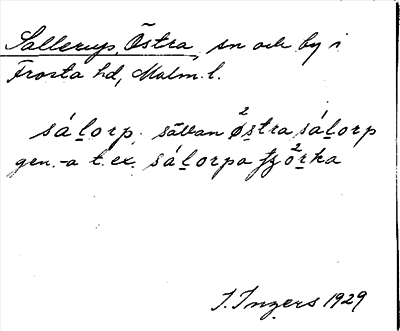 Sallerup, Östra, sn och by i
Frosta hd, Malm. l.
sálorp, sällan östra sálorp
gen. -a t. ex. sálorpa
I. Ingers 1929